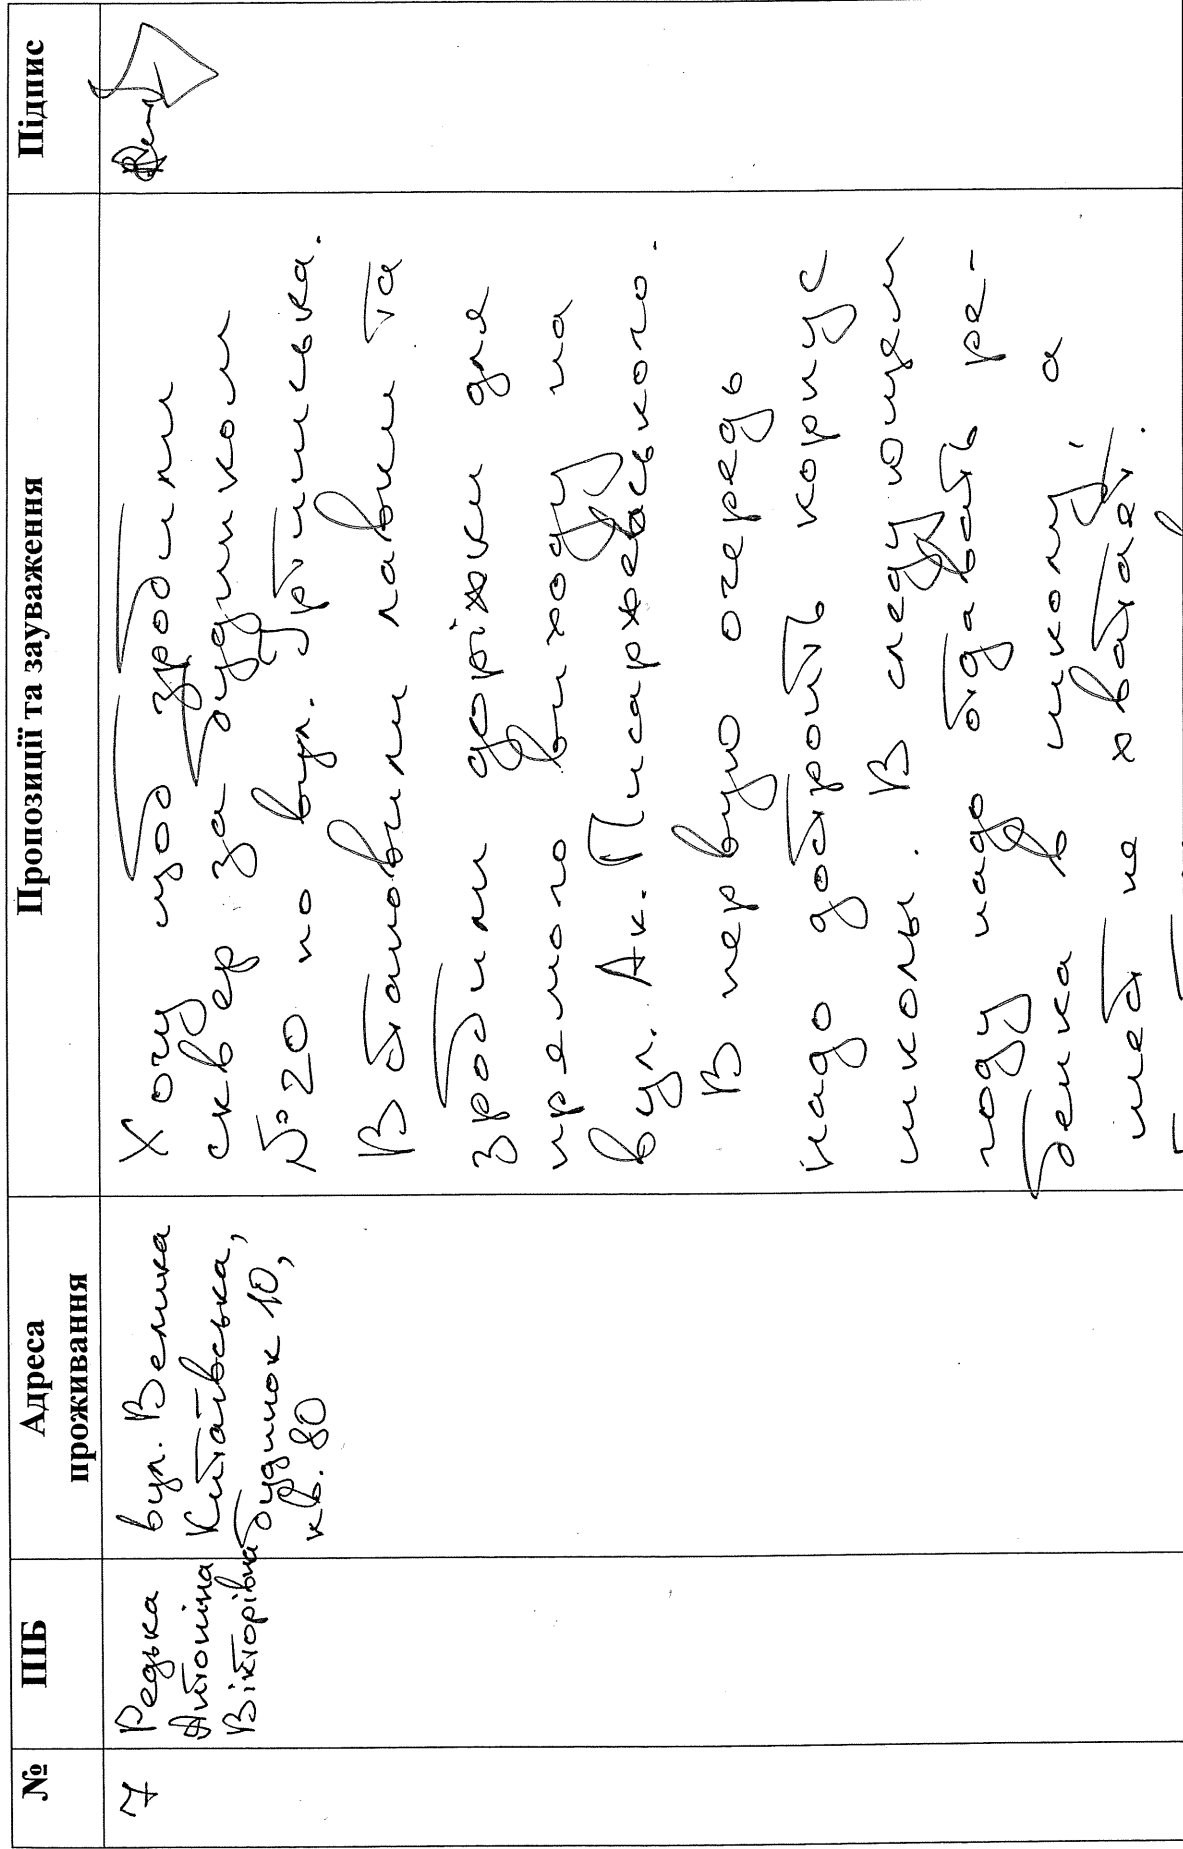 №
ПІБ
Адреса
проживання
Пропозиції та зауваження
Підпис
7
Редька
Антоніна
Вікторівна
вул. Велика
Китаївська,
будинок 10,
кв. 80
Хочу щоб зробили
сквер за будинком
№20 по вул.
Встановили лавки та
зробили доріжки для
прямого виходу на
вул. Ак. Писаржевського.
В первую очередь
надо достроить корпус
школы. В следующем
году надо отдавать ре-
бенка в школу, а
мест не хватает.